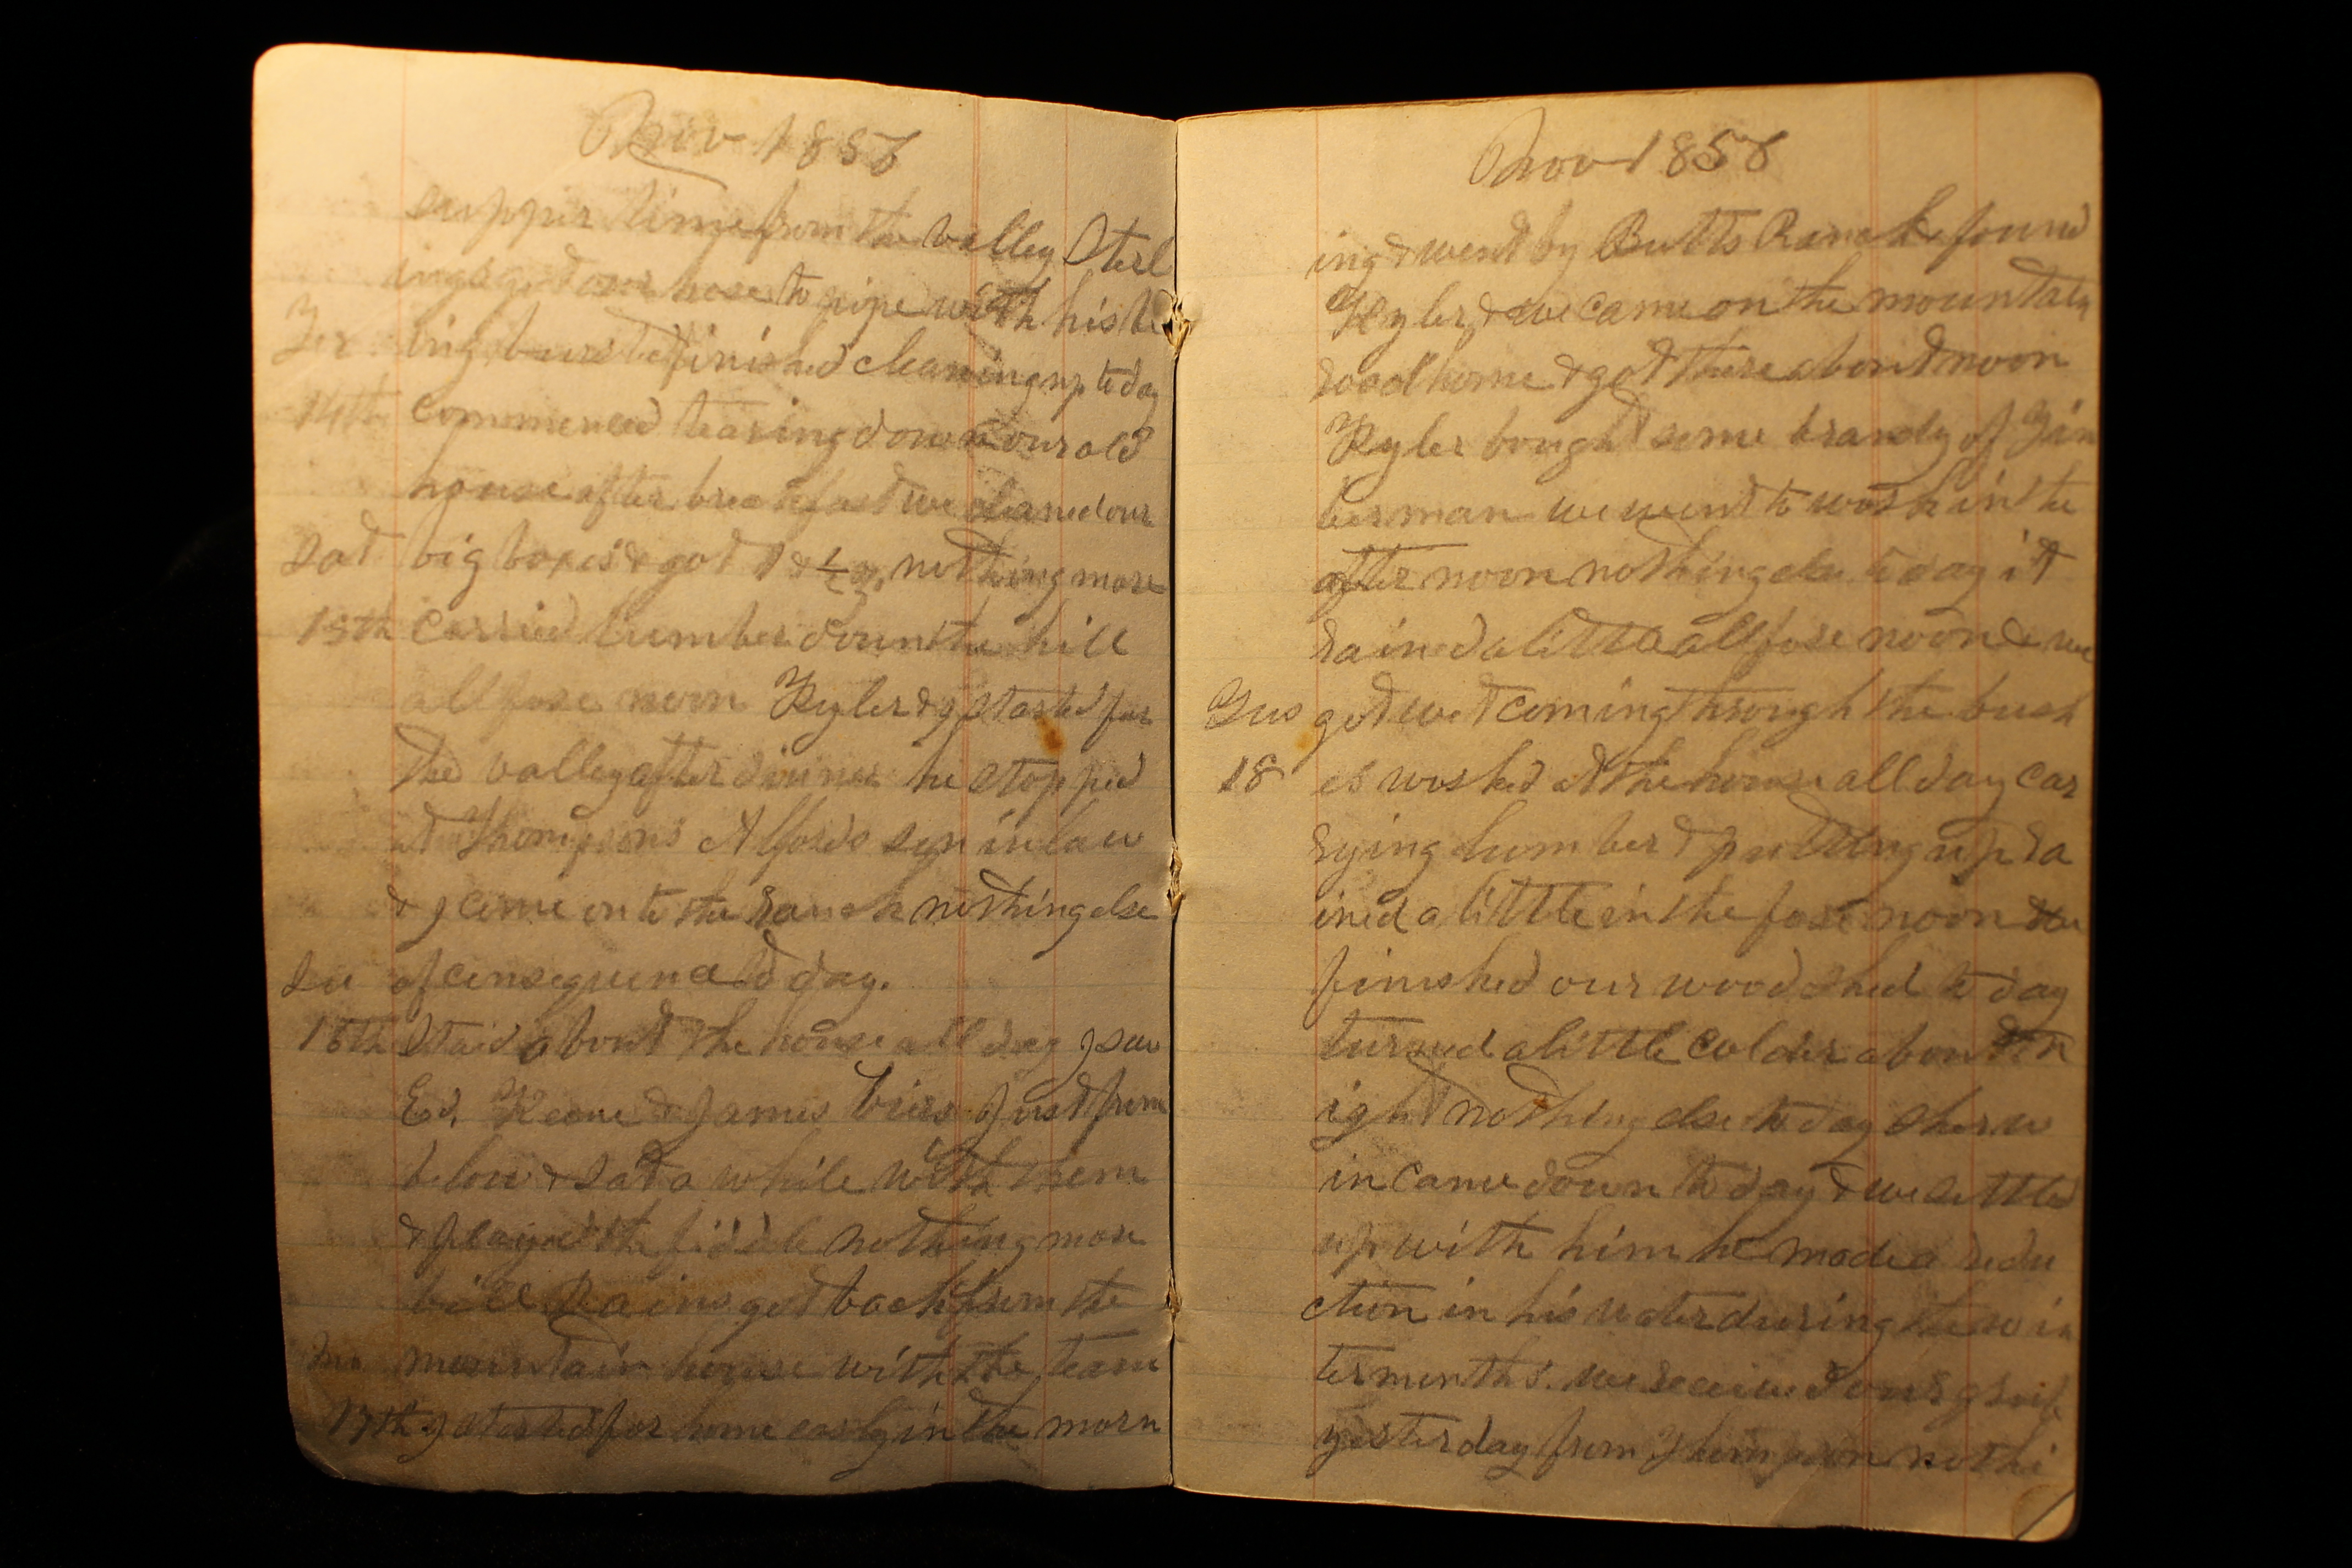 Nov 1856
supper time from the valley Sterl
ing got our hose to pipe with his be
Fri ing bursted finished cleaning up to day
14th Commenced tearing down our old
house after breakfast we cleaned our
Sat big boxes & got 1 & 1/2 oz nothing more
15th Carried lumber down the hill
all fore noon Kyler & I started for
the valley after dinner he stopped
at Thompsons Alfords son in law
& I come on to the Ranch nothing else
Su of consequence to day.
16th Staid about the house all day I saw
Ed. Keone & James Bires Just from
below & sat a while with them
& played the fiddle nothing more
bill Rains got back from the
Mo mountain house with the team
17th I started for home early in the morn
Nov 1856
ing & went by Butts Ranch found
Kyler & we came on the mountain
road home & got there about noon
Kyler bought some brandy of Zim
berman we went to work in the
after noon nothing else to day it
rained a little all fore noon & we
Tus got wet coming through the bush
18 es worked at the house all day car
rying lumber & putting up ra
ined a little in the fore noon we
finished our wood shed to day
turned a little colder about n
ight nothing else to day Sherw
in came down to day & we settled
up with him he made a redu
ction in his water during the win
ter months. we received our
yesterday from Thompson nothi